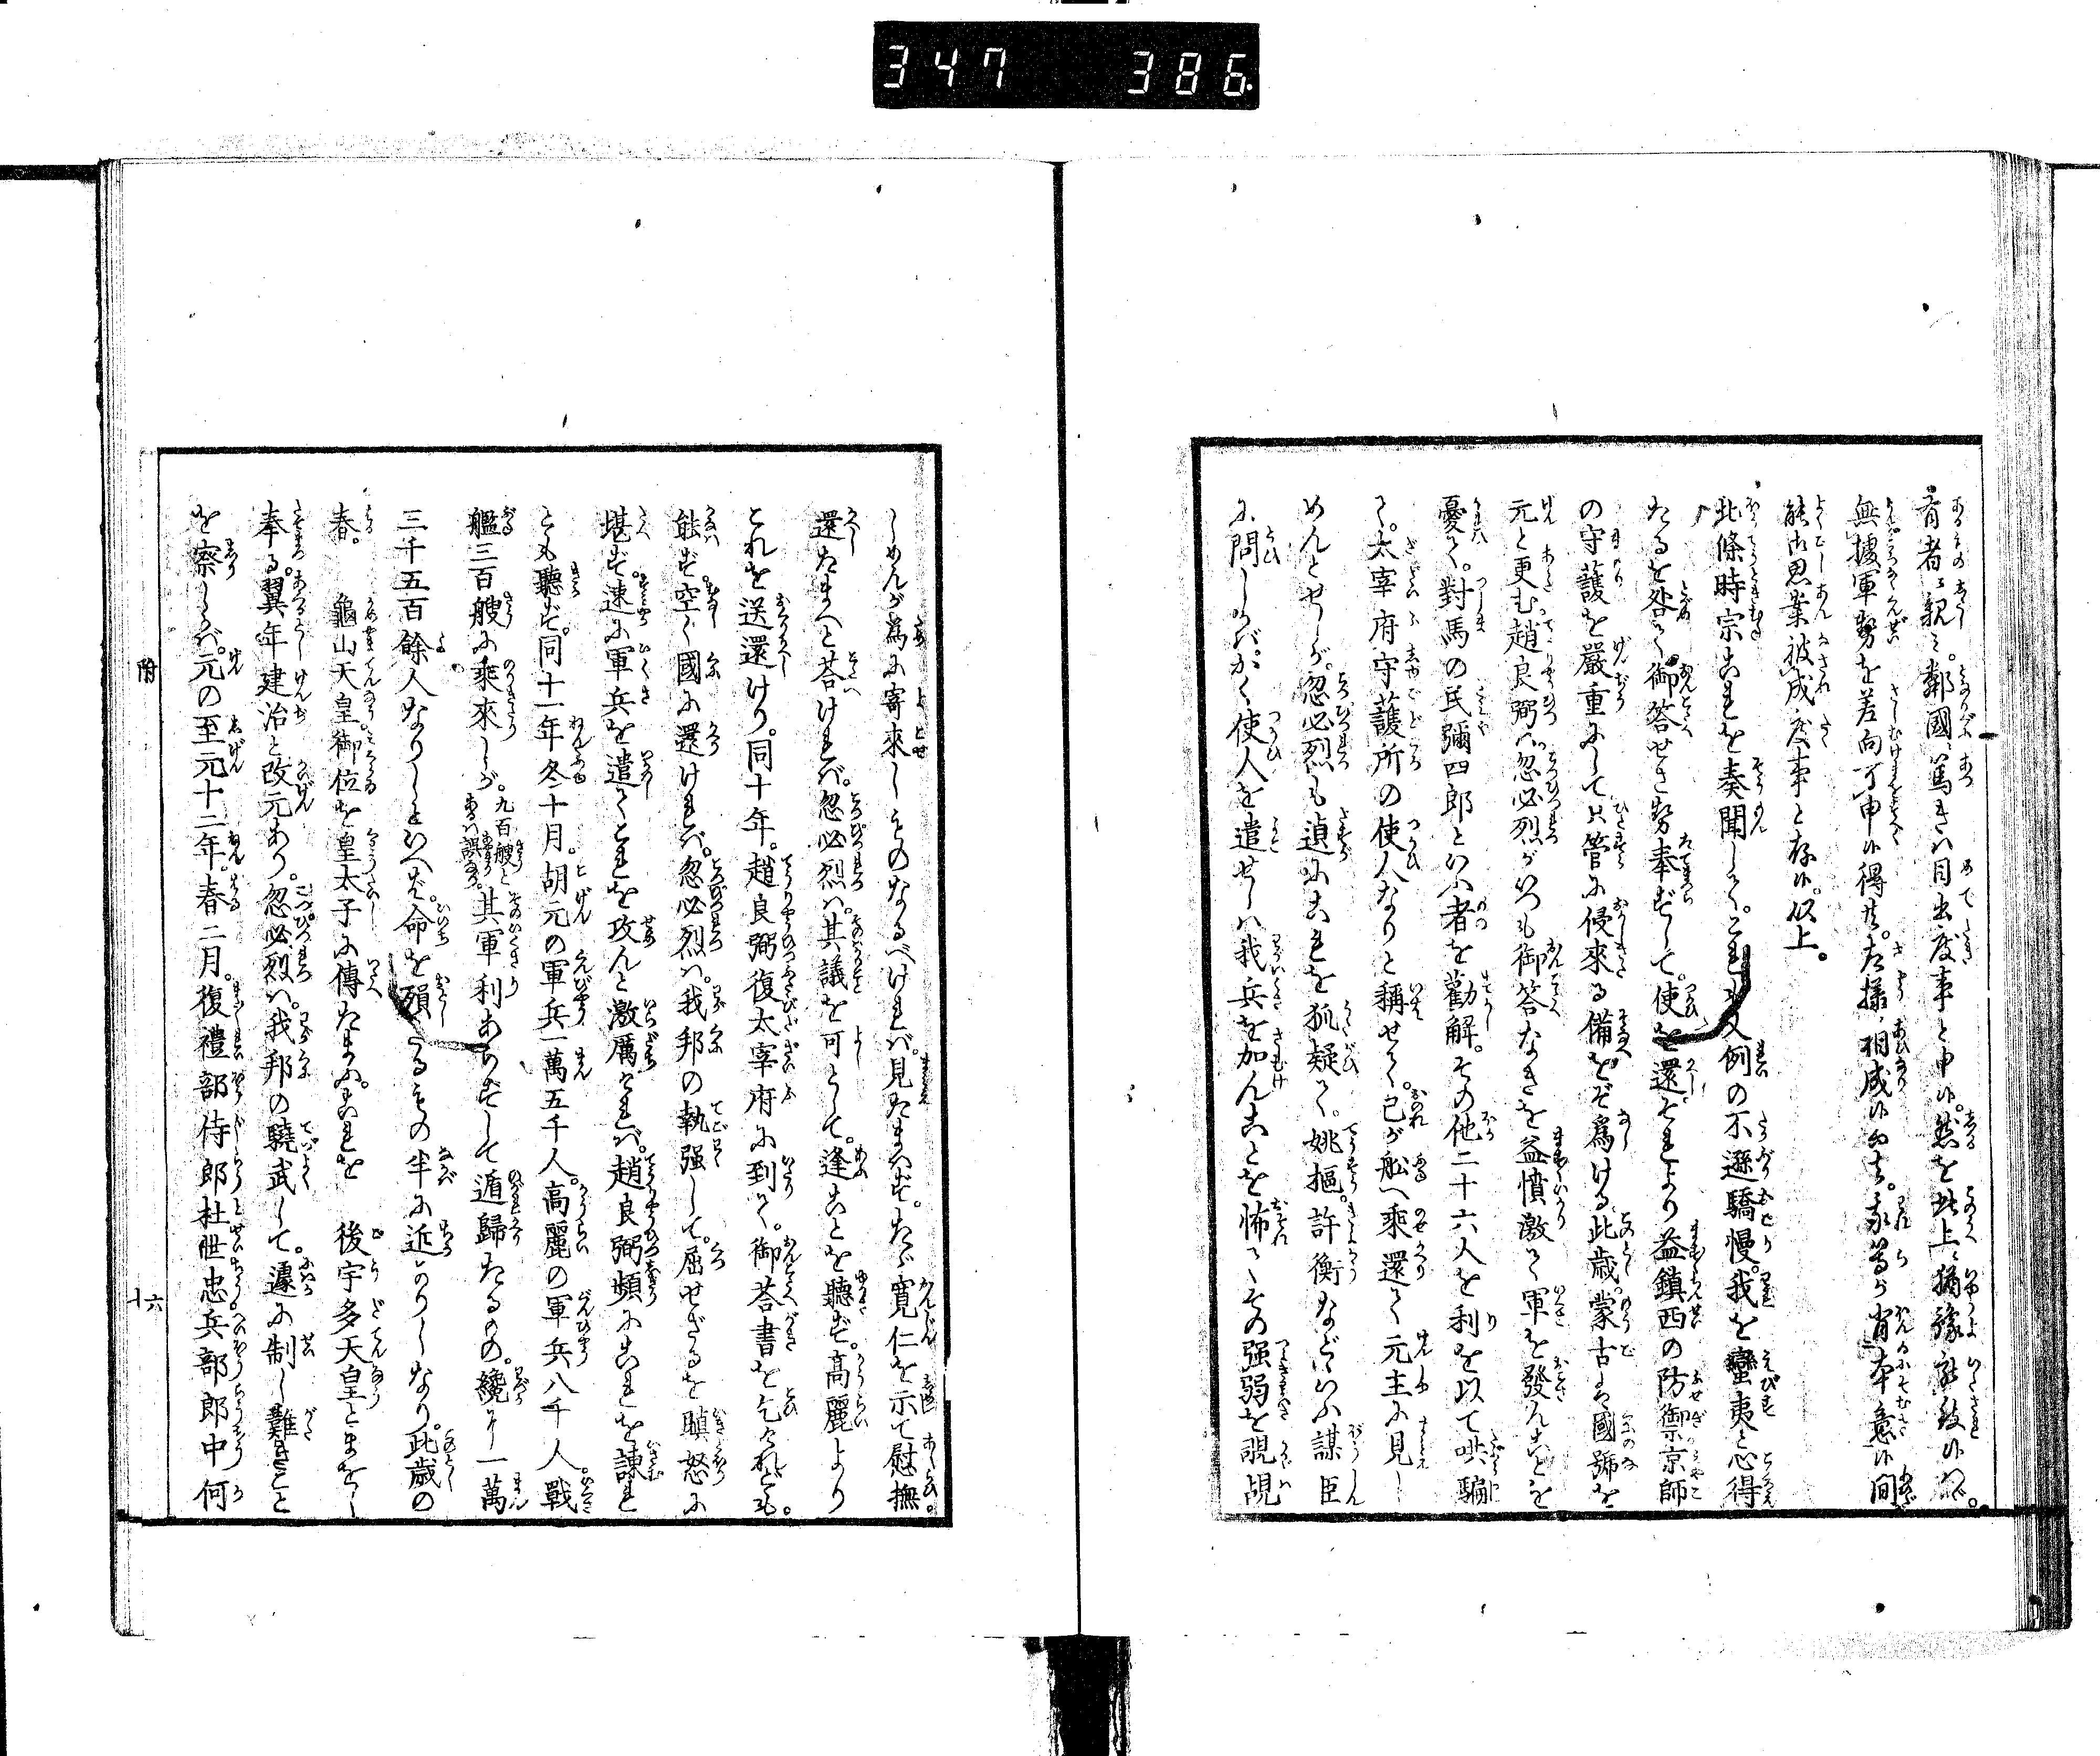 347 386
有者、親ミ。鄰國、篤きハ目出度事と申候。然を此上、猶豫被致候ハヾ。
無據軍勢を差向可申候得共。左様、相成候ハヾ。我等が背本意候間
能御思案被成度事と存候。以上。
北條時宗これを奏聞して。これも又例の不遜驕慢。我を蠻夷と心得
たるを咎て。御答せさせ奉ずして。使を還それより益鎮西の防禦京師
の守護を嚴重にして只管に侵來る備をぞ爲ける。此歳。蒙古を國號を
元と更む趙良弼ハ忽必烈がいつも御答なきを益憤激て軍を發んことを
憂て。對馬の民彌四郎といふ者を勸解。その他二十六人を利を以て哄騙
て。太宰府守護所の使人なりと稱せて。己が舩へ乘還て元主に見し
めんとせしが。忽必烈も遉にこれを狐疑て。姚摳。許衡などいふ謀臣
に問しかバ。かく使人を遣せしハ我兵を加んことを怖てその强弱を覘覘
しめんが爲に寄來しものなるべければ。見たまハず。たゞ寬仁を示て慰撫。
還たまへと荅ければ。忽必烈ハ。其議を可として。逢ことを聽ず。高麗より
これを送還けり。同十年。趙良弼復太宰府に到て。御荅書を乞けれども。
能ず。空く國に還ければ。忽必烈ハ。我邦の執强して。屈せざるを瞋怒に
堪ず。速に軍兵を遣てこれを攻んと激厲ければ。趙良弼頻にこれを諫れ
とも聽ず。同十一年冬十月。胡元の軍兵一萬五千人。高麗の軍兵八千人。戰
艦三百艘に乘來しが。九百艘とあるハ誤なり。其軍利あらずして遁歸たるもの。纔に一萬
三千五百餘人なりしといへバ。命を殞しゝもの半に近かりしなり。此歳の
春。龜山天皇。御位を皇太子に傳たまふ。これを後宇多天皇とまをし
奉る。翼年建治と改元あり。忽必烈ハ。我邦の驍武して。遽に制し難きこと
を察しかバ。元の至元十二年。春二月。復禮部侍郎杜世忠兵部郎中何
附 十六